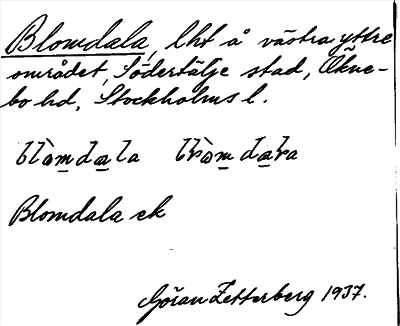 Blomdala, lht å västra yttre
området, Södertälje stad, Ökne-
bo hd, Stockholms l.
Blomdala ek
Göran Zetterberg 1937.